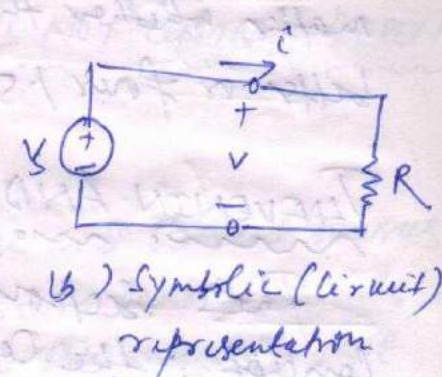 i
+
Vs
+
-
V
R
-
(b) Symbolic (Circuit)
representation